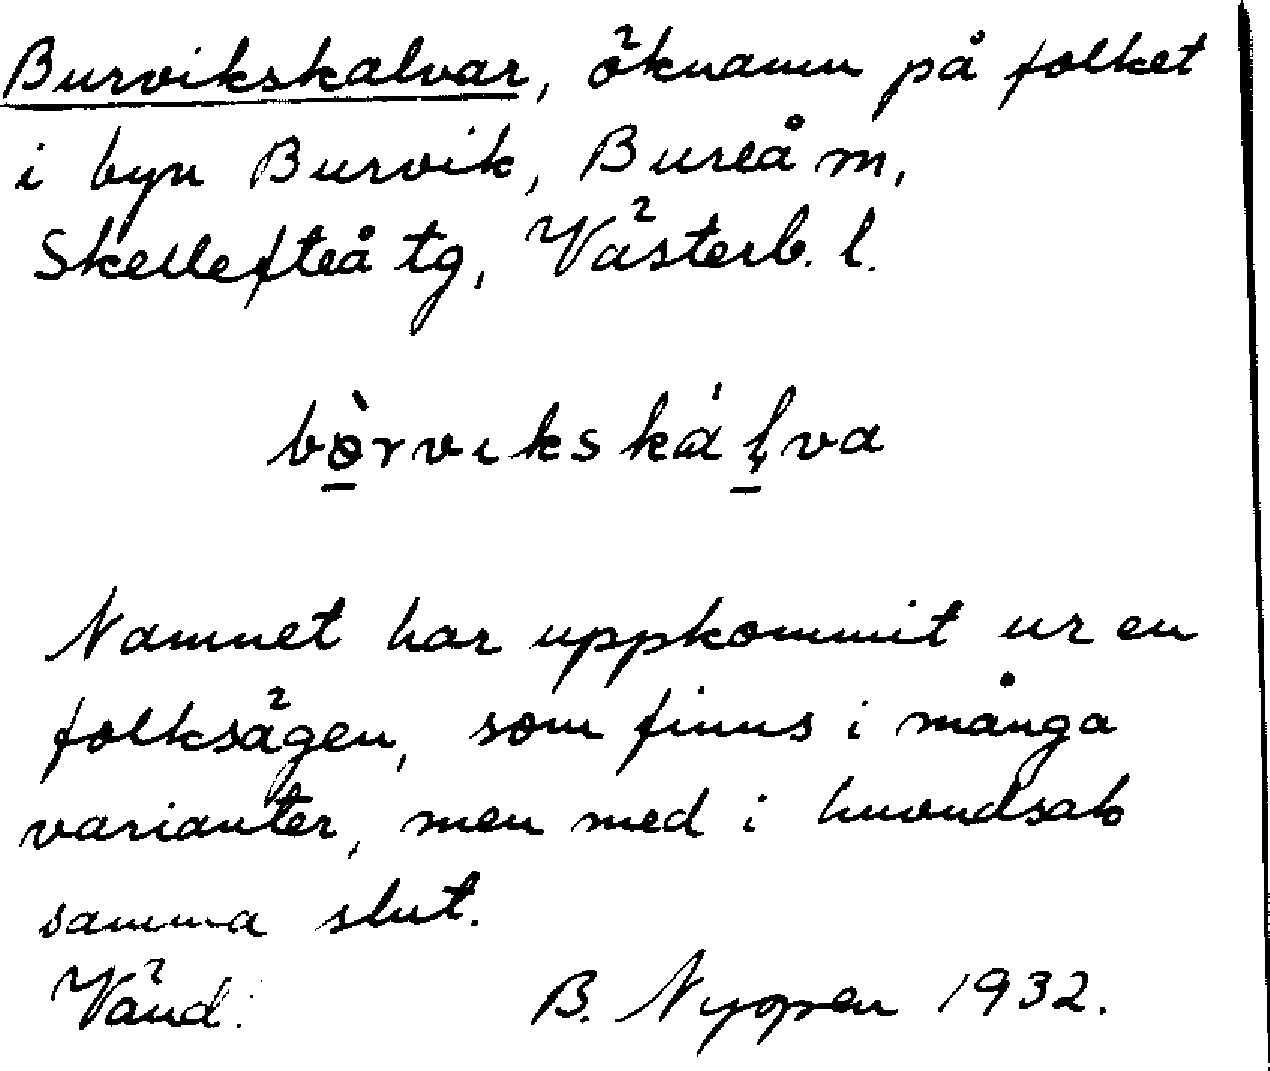 Burvikskalvar, öknamn på folket
i byn Burvik, Bureå m,
Skellefteå tg, Västerb. l.
bò̱rvikskáḻva
Namnet har uppkommit ur en
folksägen, som finns i många
varianter, men med i huvudsak
samma slut.
Vänd. B. Nyopen 1932.